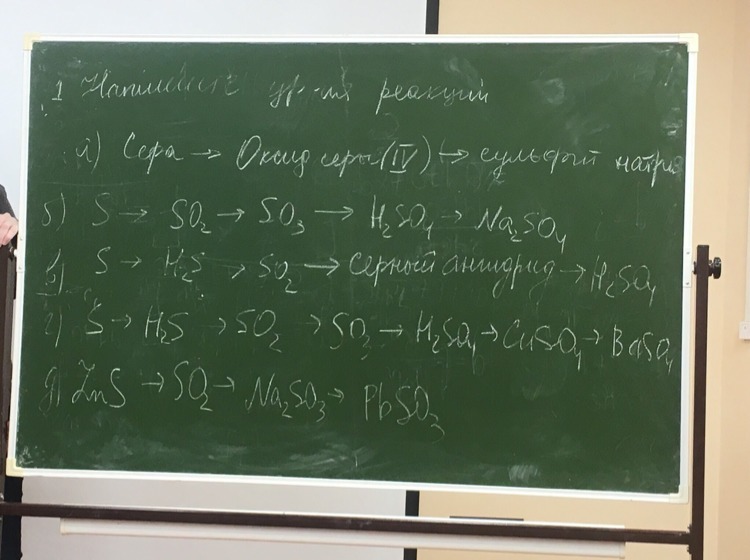 1 Напишите ур-ия реакций
а) Сера → Оксид серы (IV) → сульфит натри
б) S → SO2 → SO3 → H2SO4 → Na2SO4
в) S → H2S → SO2 → серный ангидрид → H2SO4
г) S → H2S → SO2 → SO3 → H2SO4 → CuSO4 → BaSO4
д) ZnS → SO2 → Na2SO3 → PbSO3